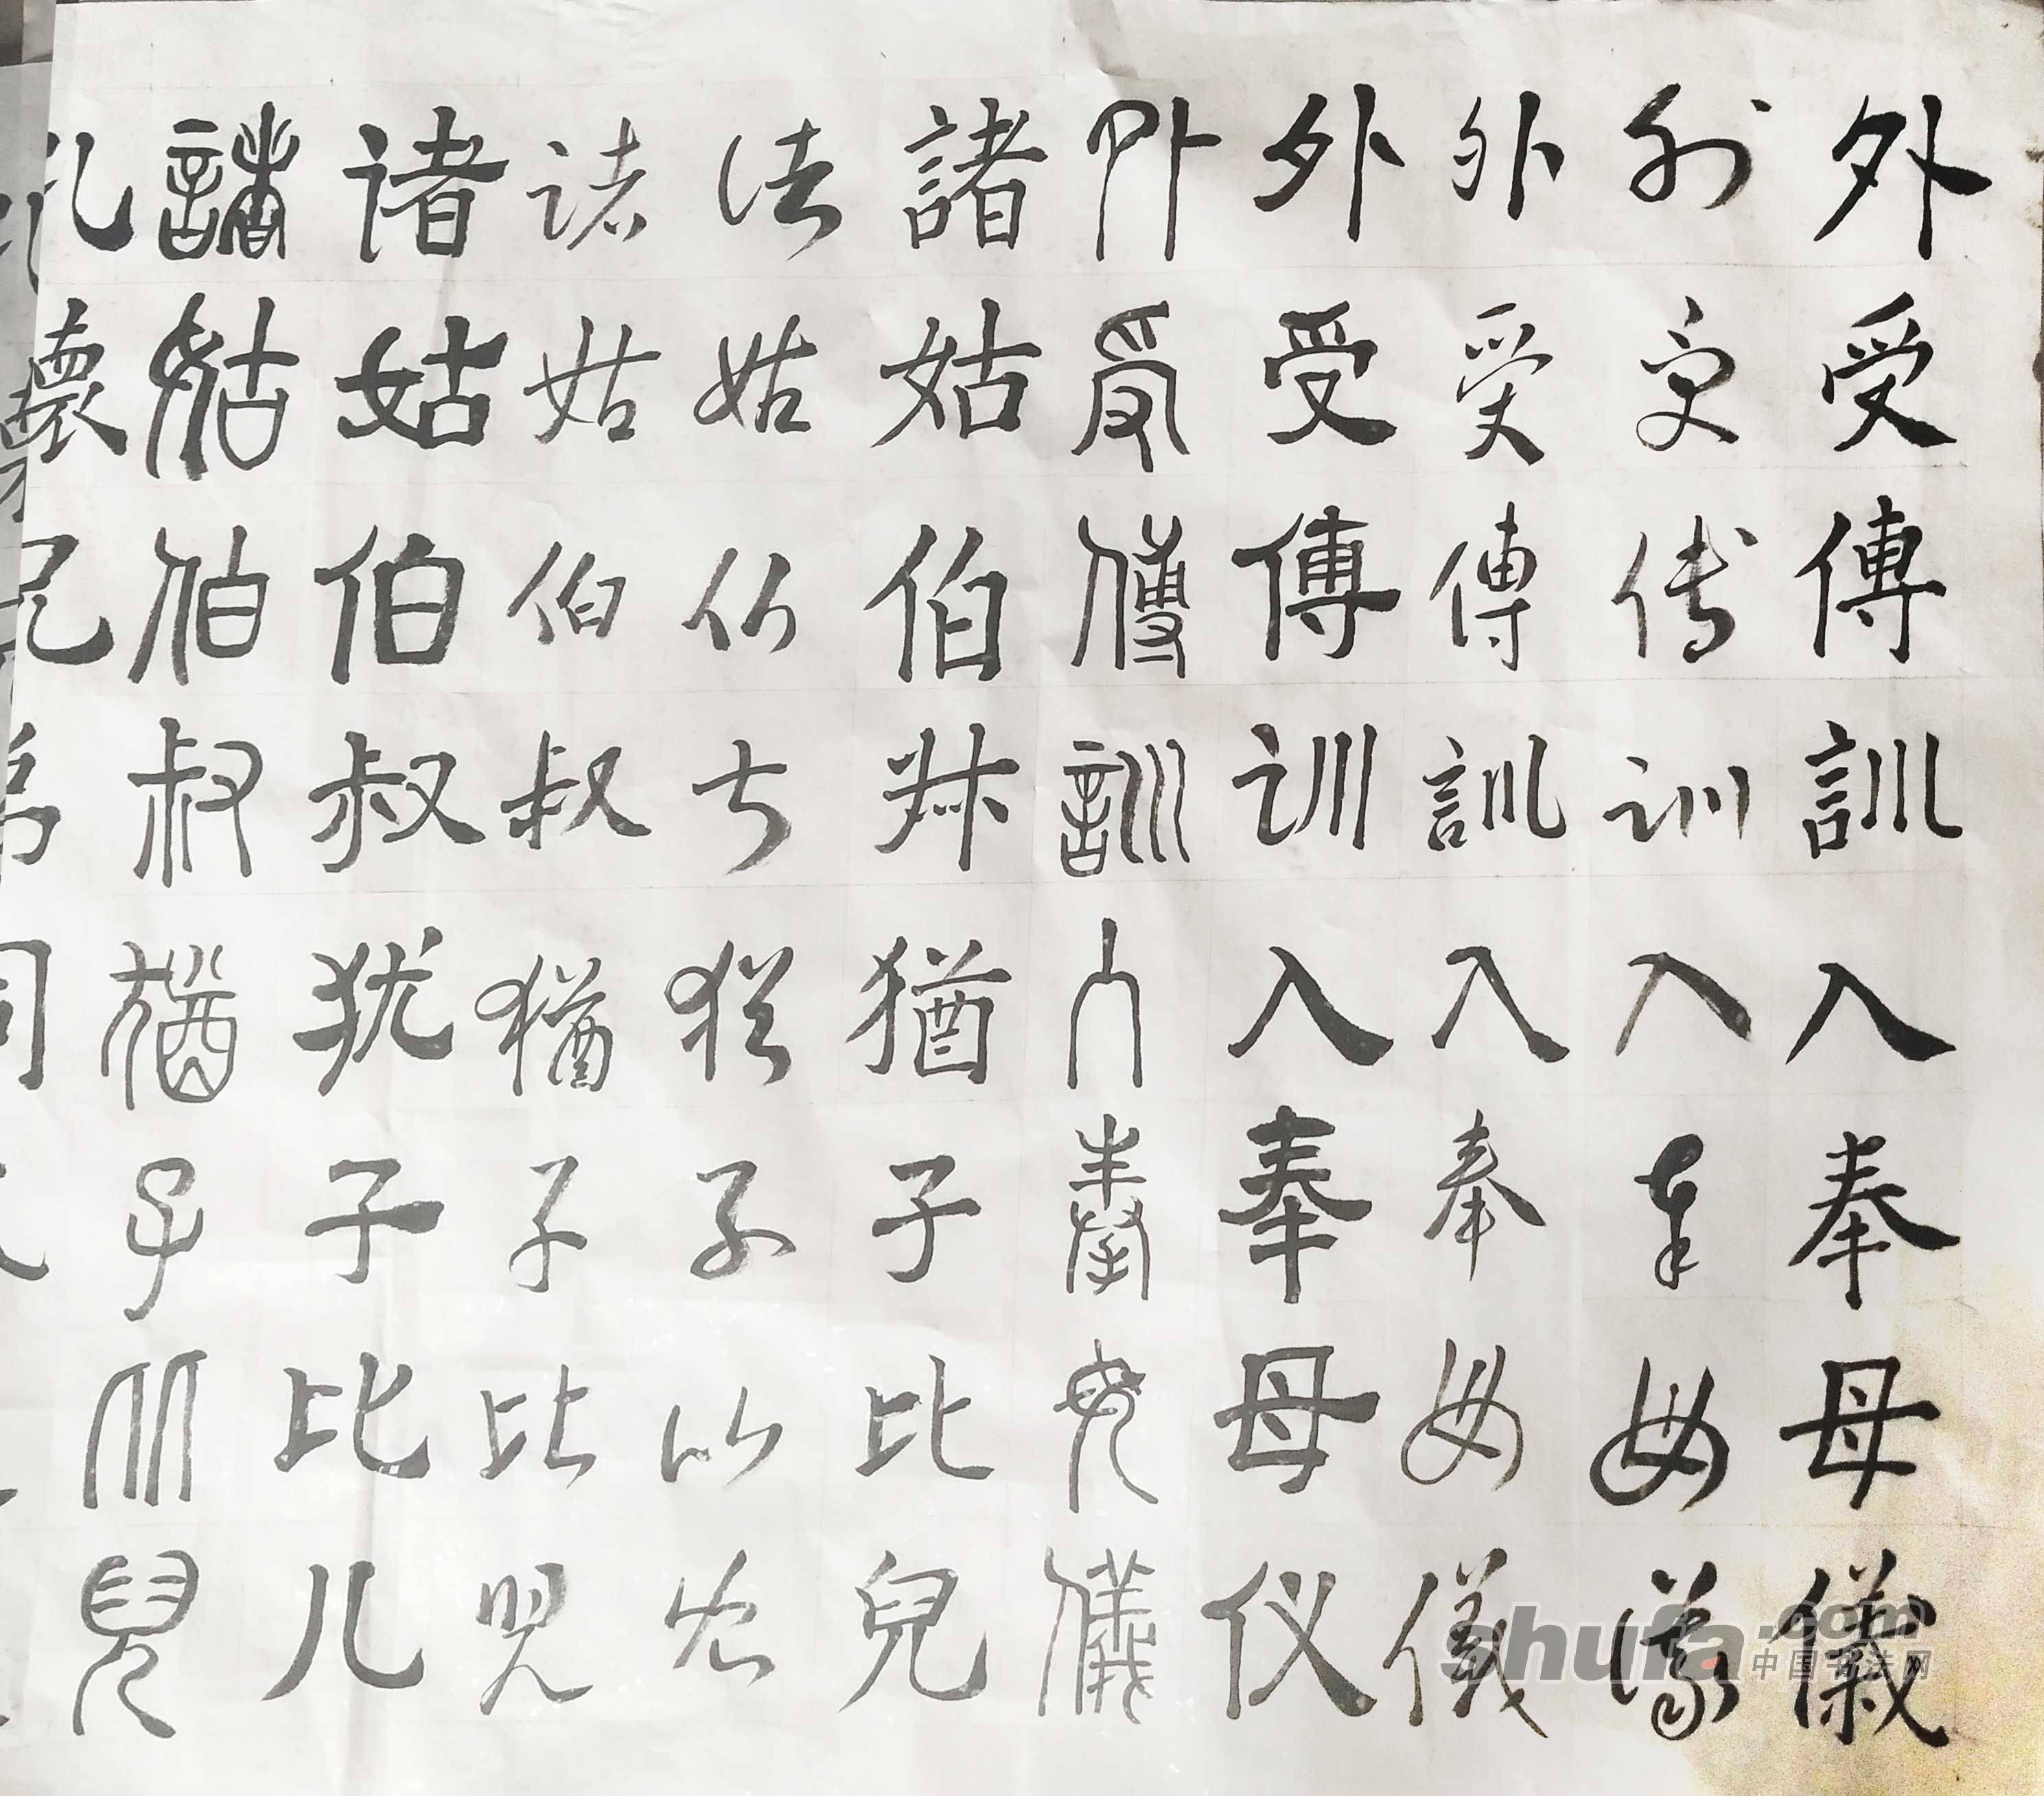 外受傳訓入奉母儀
外受传训入奉母儀
外受傳訓入奉母儀
外受傳训入奉母仪
外受傳訓入奉母儀
諸姑伯叔猶子比兒
诸姑伯叔猶子比兒
诸姑伯叔猶子比兒
诸姑伯叔犹子比儿
諸姑伯叔猶子比兒
孔懷兄弟同氣
shufa.com
中国书法网